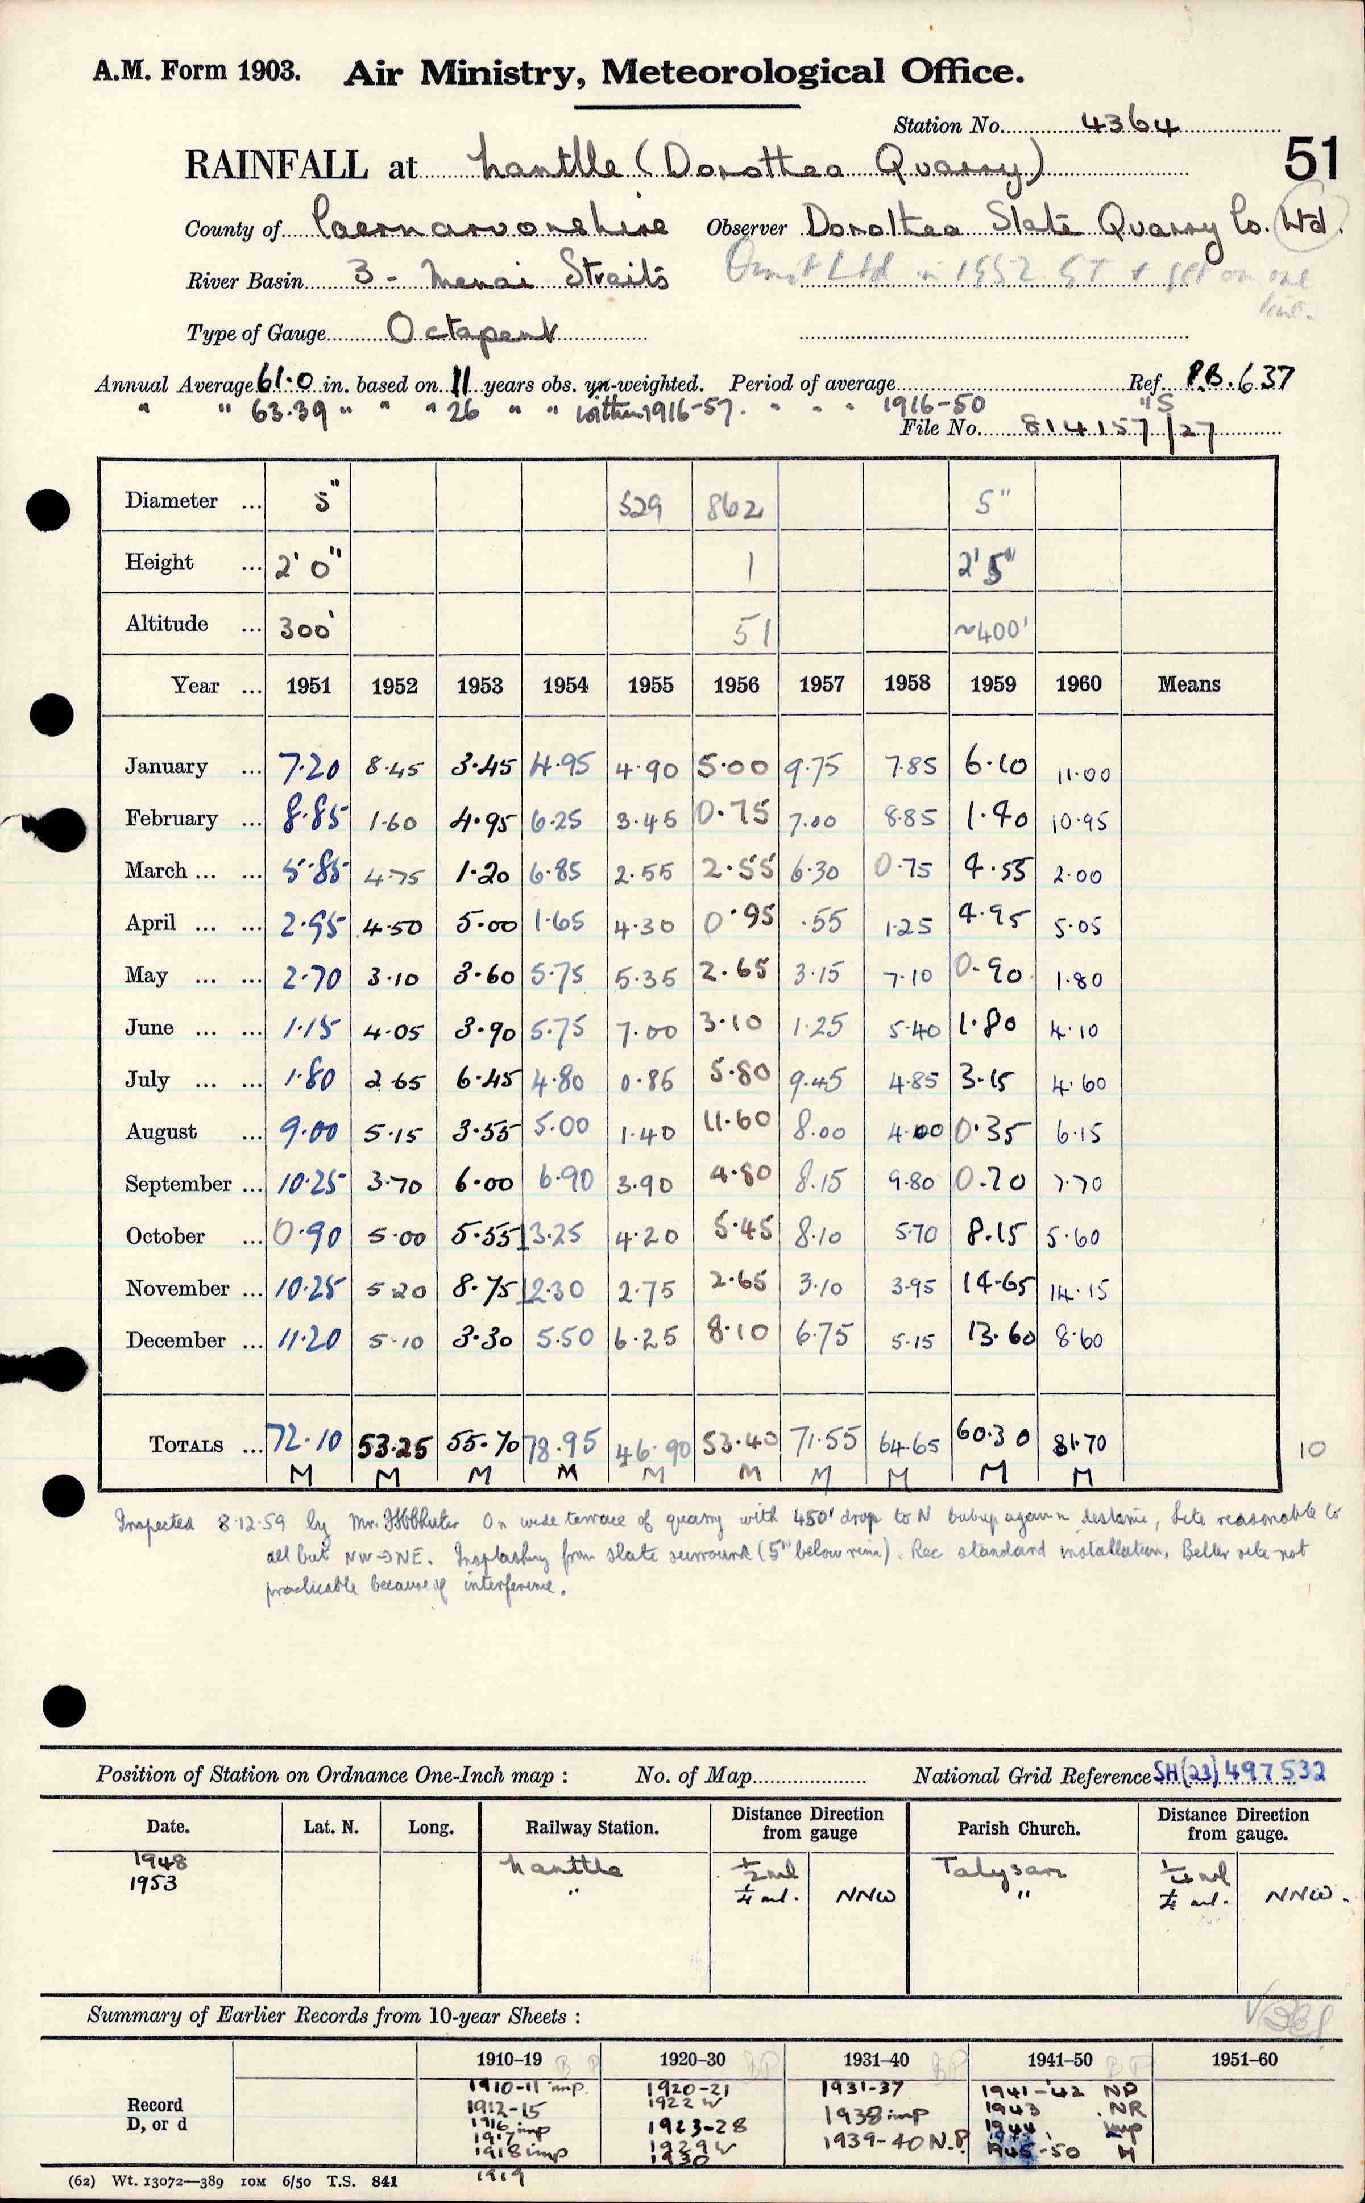 A.M. Form 1903. Air Ministry, Meteorological Office.
Station No. 4364
51
RAINFALL at Nantlle (Dorothea Quarry)
County of Caernarvonshire Observer Dorothea Slate Quarry Co. Ltd.
River Basin 3 - Menai Straits Omit Ltd in 1952 & get on one line.
Type of Gauge Octapent
Annual Average 61.0 in. based on 11 years obs. un-weighted. Period of average Ref. P.B. 637
" " 63.39 " " " 26 " " within 1916-57. " " " 1916-50 " S
File No. 814157/27
Diameter ... 5" 529 862 5"
Height ... 2' 0" 1 2' 5"
Altitude ... 300' 51 ~400'
Year ... 1951 1952 1953 1954 1955 1956 1957 1958 1959 1960 Means
January ... 7.20 8.45 3.45 4.95 4.90 5.00 9.75 7.85 6.10 11.00
February ... 8.85 1.60 4.95 6.25 3.45 0.75 7.00 8.85 1.40 10.95
March ... ... 5.85 4.75 1.20 6.85 2.55 2.55 6.30 0.75 4.55 2.00
April ... ... 2.95 4.50 5.00 1.65 4.30 0.95 .55 1.25 4.95 5.05
May ... ... 2.70 3.10 3.60 5.75 5.35 2.65 3.15 7.10 0.90 1.80
June ... ... 1.15 4.05 3.90 5.75 7.00 3.10 1.25 5.40 1.80 4.10
July ... ... 1.80 2.65 6.45 4.80 0.85 5.80 9.45 4.85 3.15 4.60
August ... 9.00 5.15 3.55 5.00 1.40 11.60 8.00 4.00 0.35 6.15
September ... 10.25 3.70 6.00 6.90 3.90 4.80 8.15 9.80 0.70 7.70
October ... 0.90 5.00 5.55 13.25 4.20 5.45 8.10 5.70 8.15 5.60
November ... 10.25 5.20 8.75 12.30 2.75 2.65 3.10 3.95 14.65 14.15
December ... 11.20 5.10 3.30 5.50 6.25 8.10 6.75 5.15 13.60 8.60
TOTALS ... 72.10 53.25 55.70 78.95 46.90 53.40 71.55 64.65 60.30 81.70 10
M M M M M M M M M M
Inspected 8.12.59 by Mr. On wide terrace of quarry with 450' drop to N but up again in distance, Site reasonable to
all but NW→NE. Insplashing from slate surround (5" below rim). Rec standard installation. Better site not
practicable because of interference.
Position of Station on Ordnance One-Inch map : No. of Map National Grid Reference SH(23) 497532
Date. Lat. N. Long. Railway Station. Distance Direction from gauge Parish Church. Distance Direction from gauge.
1948 Nantlle ½ ml Talysarn ¼ ml
1953 " ¼ ml. NNW " ¼ ml. NNW.
Summary of Earlier Records from 10-year Sheets :
1910–19 BP 1920–30 BP 1931–40 BP 1941–50 BP 1951–60
Record
D, or d
1910-11 imp. 1920-21 1931-37 1941-42 NP
1912-15 1922 W 1938 imp 1943 NR
1916 imp 1923-28 1939-40 N.P. 1944 imp
1917 1929 W 1945-50 M
1918 imp 1930
1919
(62) Wt. 13072—389 10M 6/50 T.S. 841